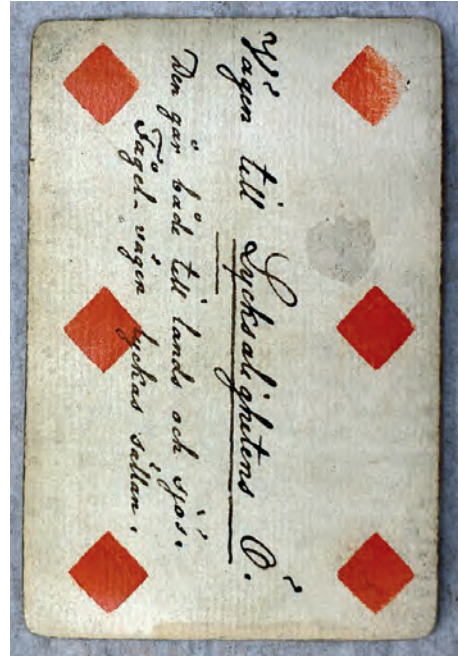 Vägen till Lycksalighetens Ö.
Den går både till lands och sjös.
Fågel-vägen lyckas sällan.